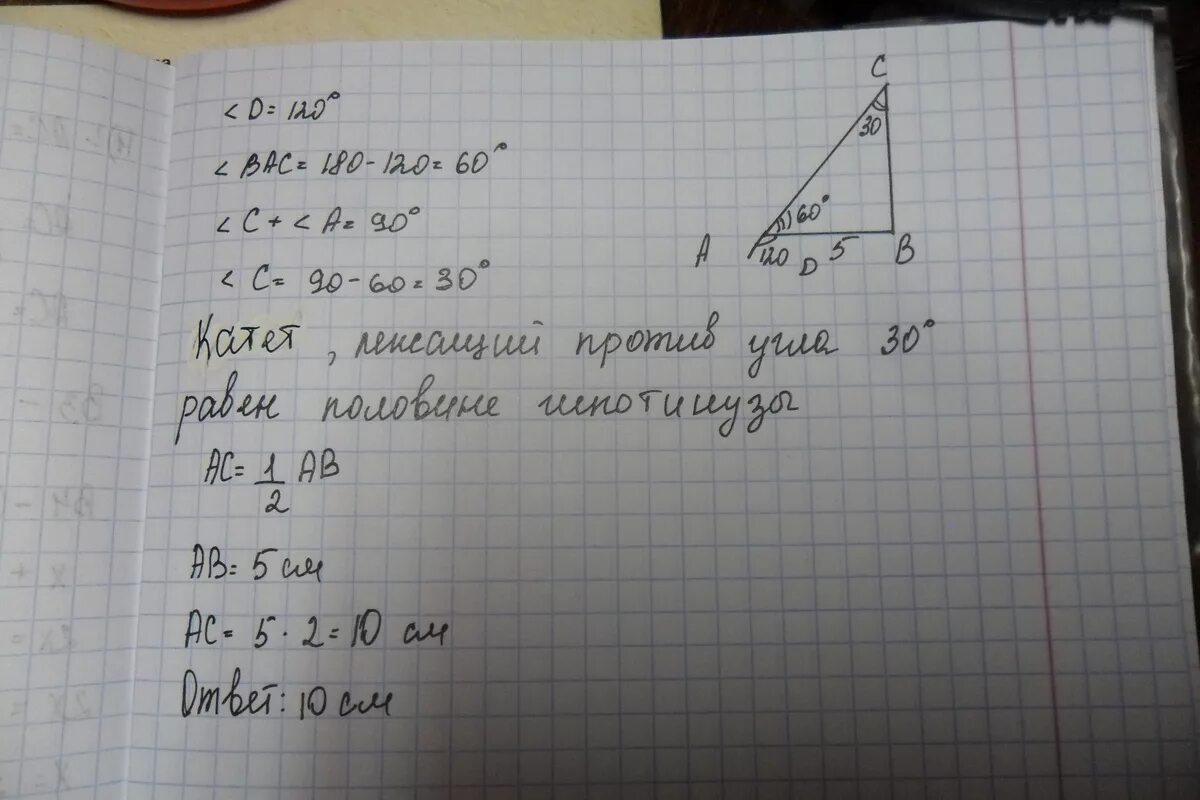 < D = 120°
< BAC = 180 - 120 = 60°
< C + < A = 90°
< C = 90 - 60 = 30°
C
30
60°
A
120
D
5
B
Катет, лежащий против угла 30°
равен половине гипотинузы
AC = 1/2 AB
AB = 5 см
AC = 5 · 2 = 10 см
Ответ: 10 см